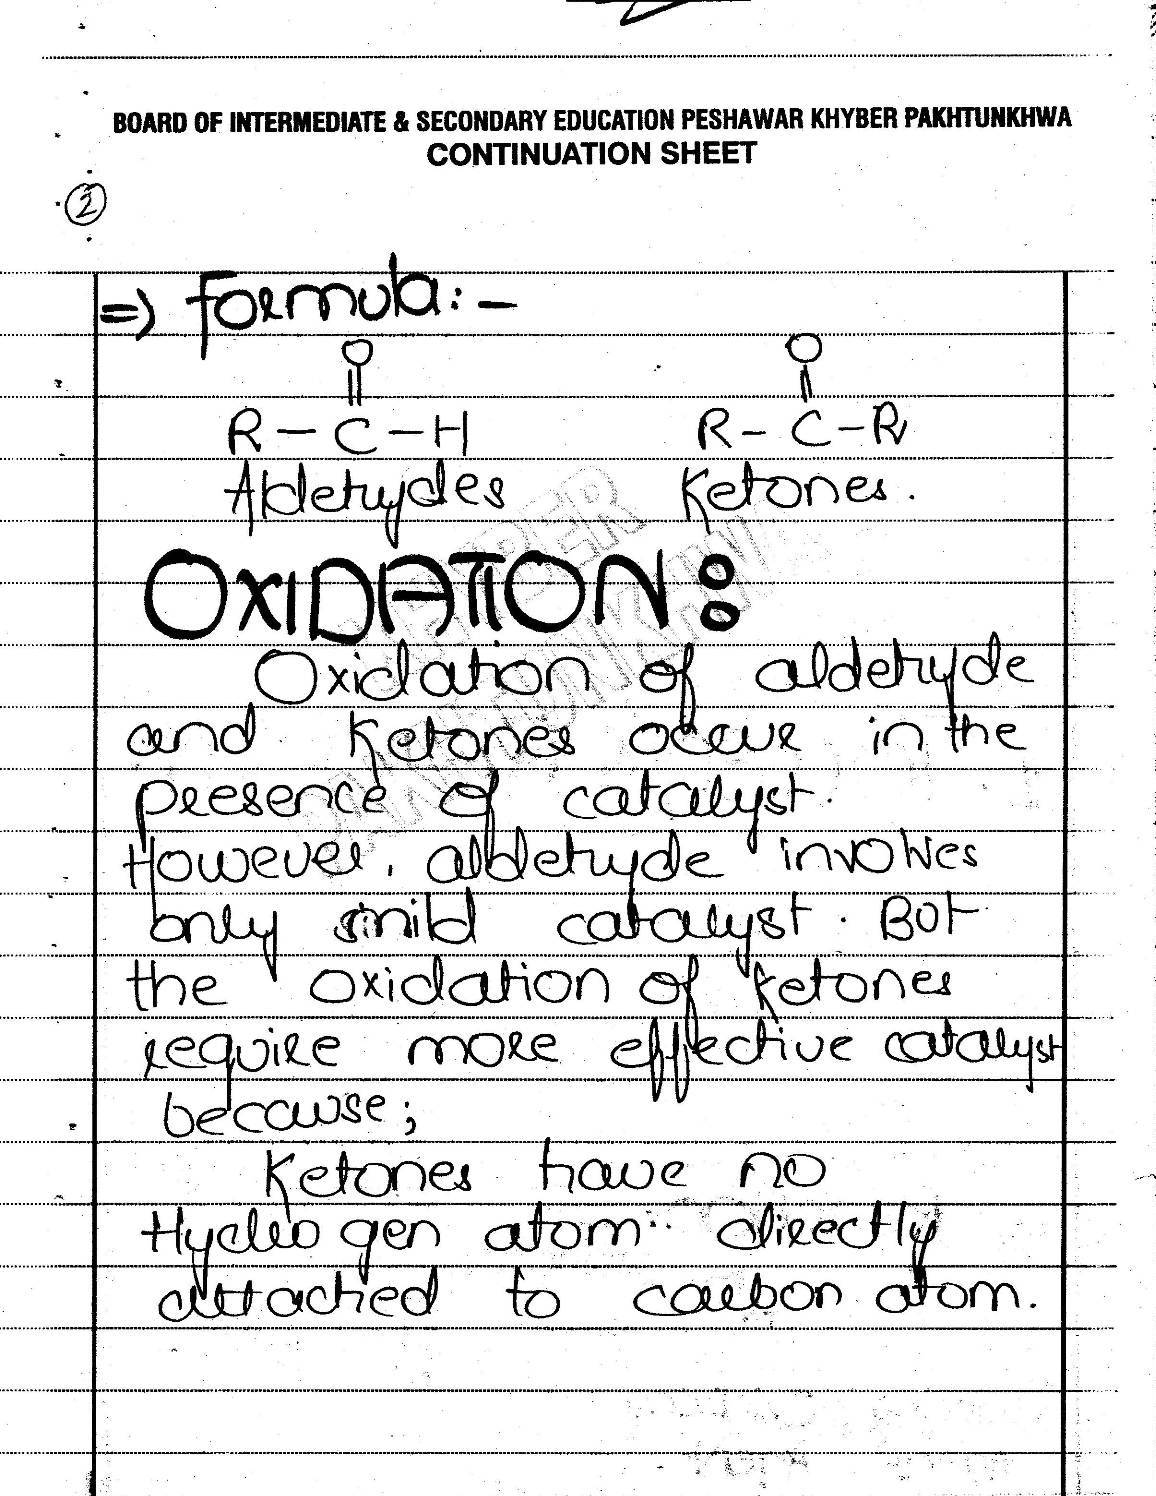 BOARD OF INTERMEDIATE & SECONDARY EDUCATION PESHAWAR KHYBER PAKHTUNKHWA
CONTINUATION SHEET
2
=> Formula:-
O O
|| ||
R - C - H R - C - R
Aldehydes Ketones.
OXIDATION:
Oxidation of aldehyde
and Ketones occur in the
presence of catalyst.
However, aldehyde involves
only mild catalyst. But
the oxidation of Ketones
require more effective catalyst
because;
Ketones have no
Hydrogen atom directly
attached to carbon atom.